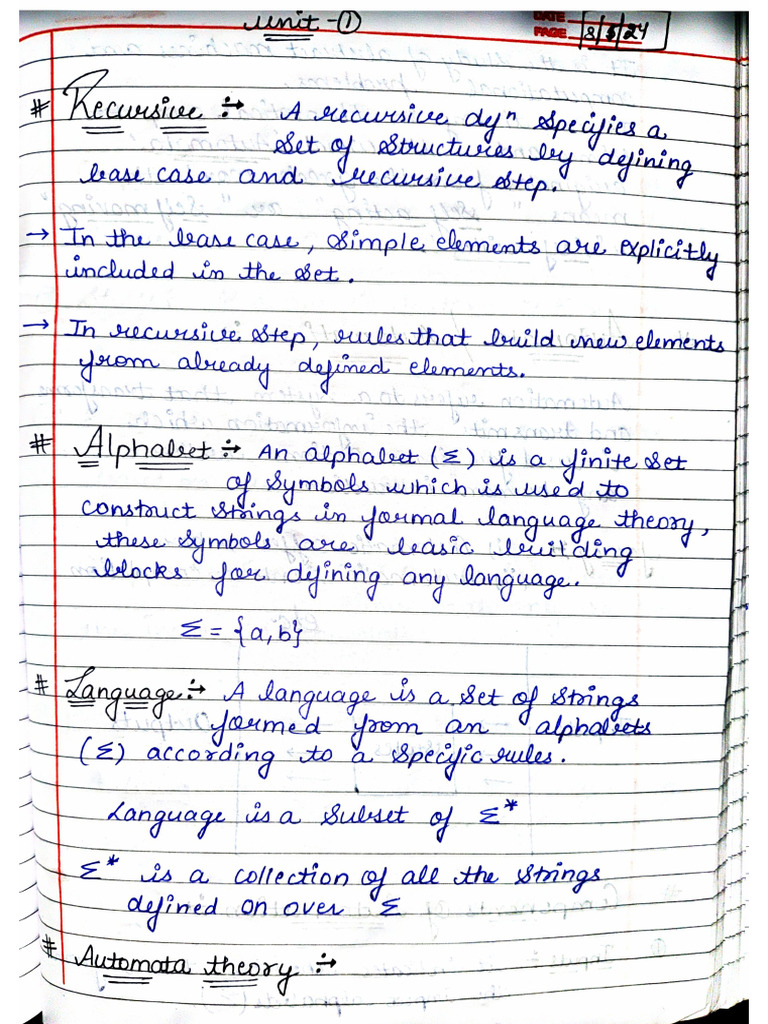 Unit - ①
DATE
PAGE 8/5/24
# Recursive :→ A recursive defⁿ specifies a
set of structures by defining
base case and recursive step.
→ In the base case, simple elements are explicitly
included in the set.
→ In recursive step, rules that build new elements
from already defined elements.
# Alphabet :→ An alphabet (Σ) is a finite set
of symbols which is used to
construct strings in formal language theory,
these symbols are basic building
blocks for defining any language.
Σ = {a, b}
# Language :→ A language is a set of strings
formed from an alphabets
(Σ) according to a specific rules.
Language is a subset of Σ*
Σ* is a collection of all the strings
defined on over Σ
# Automata theory :→